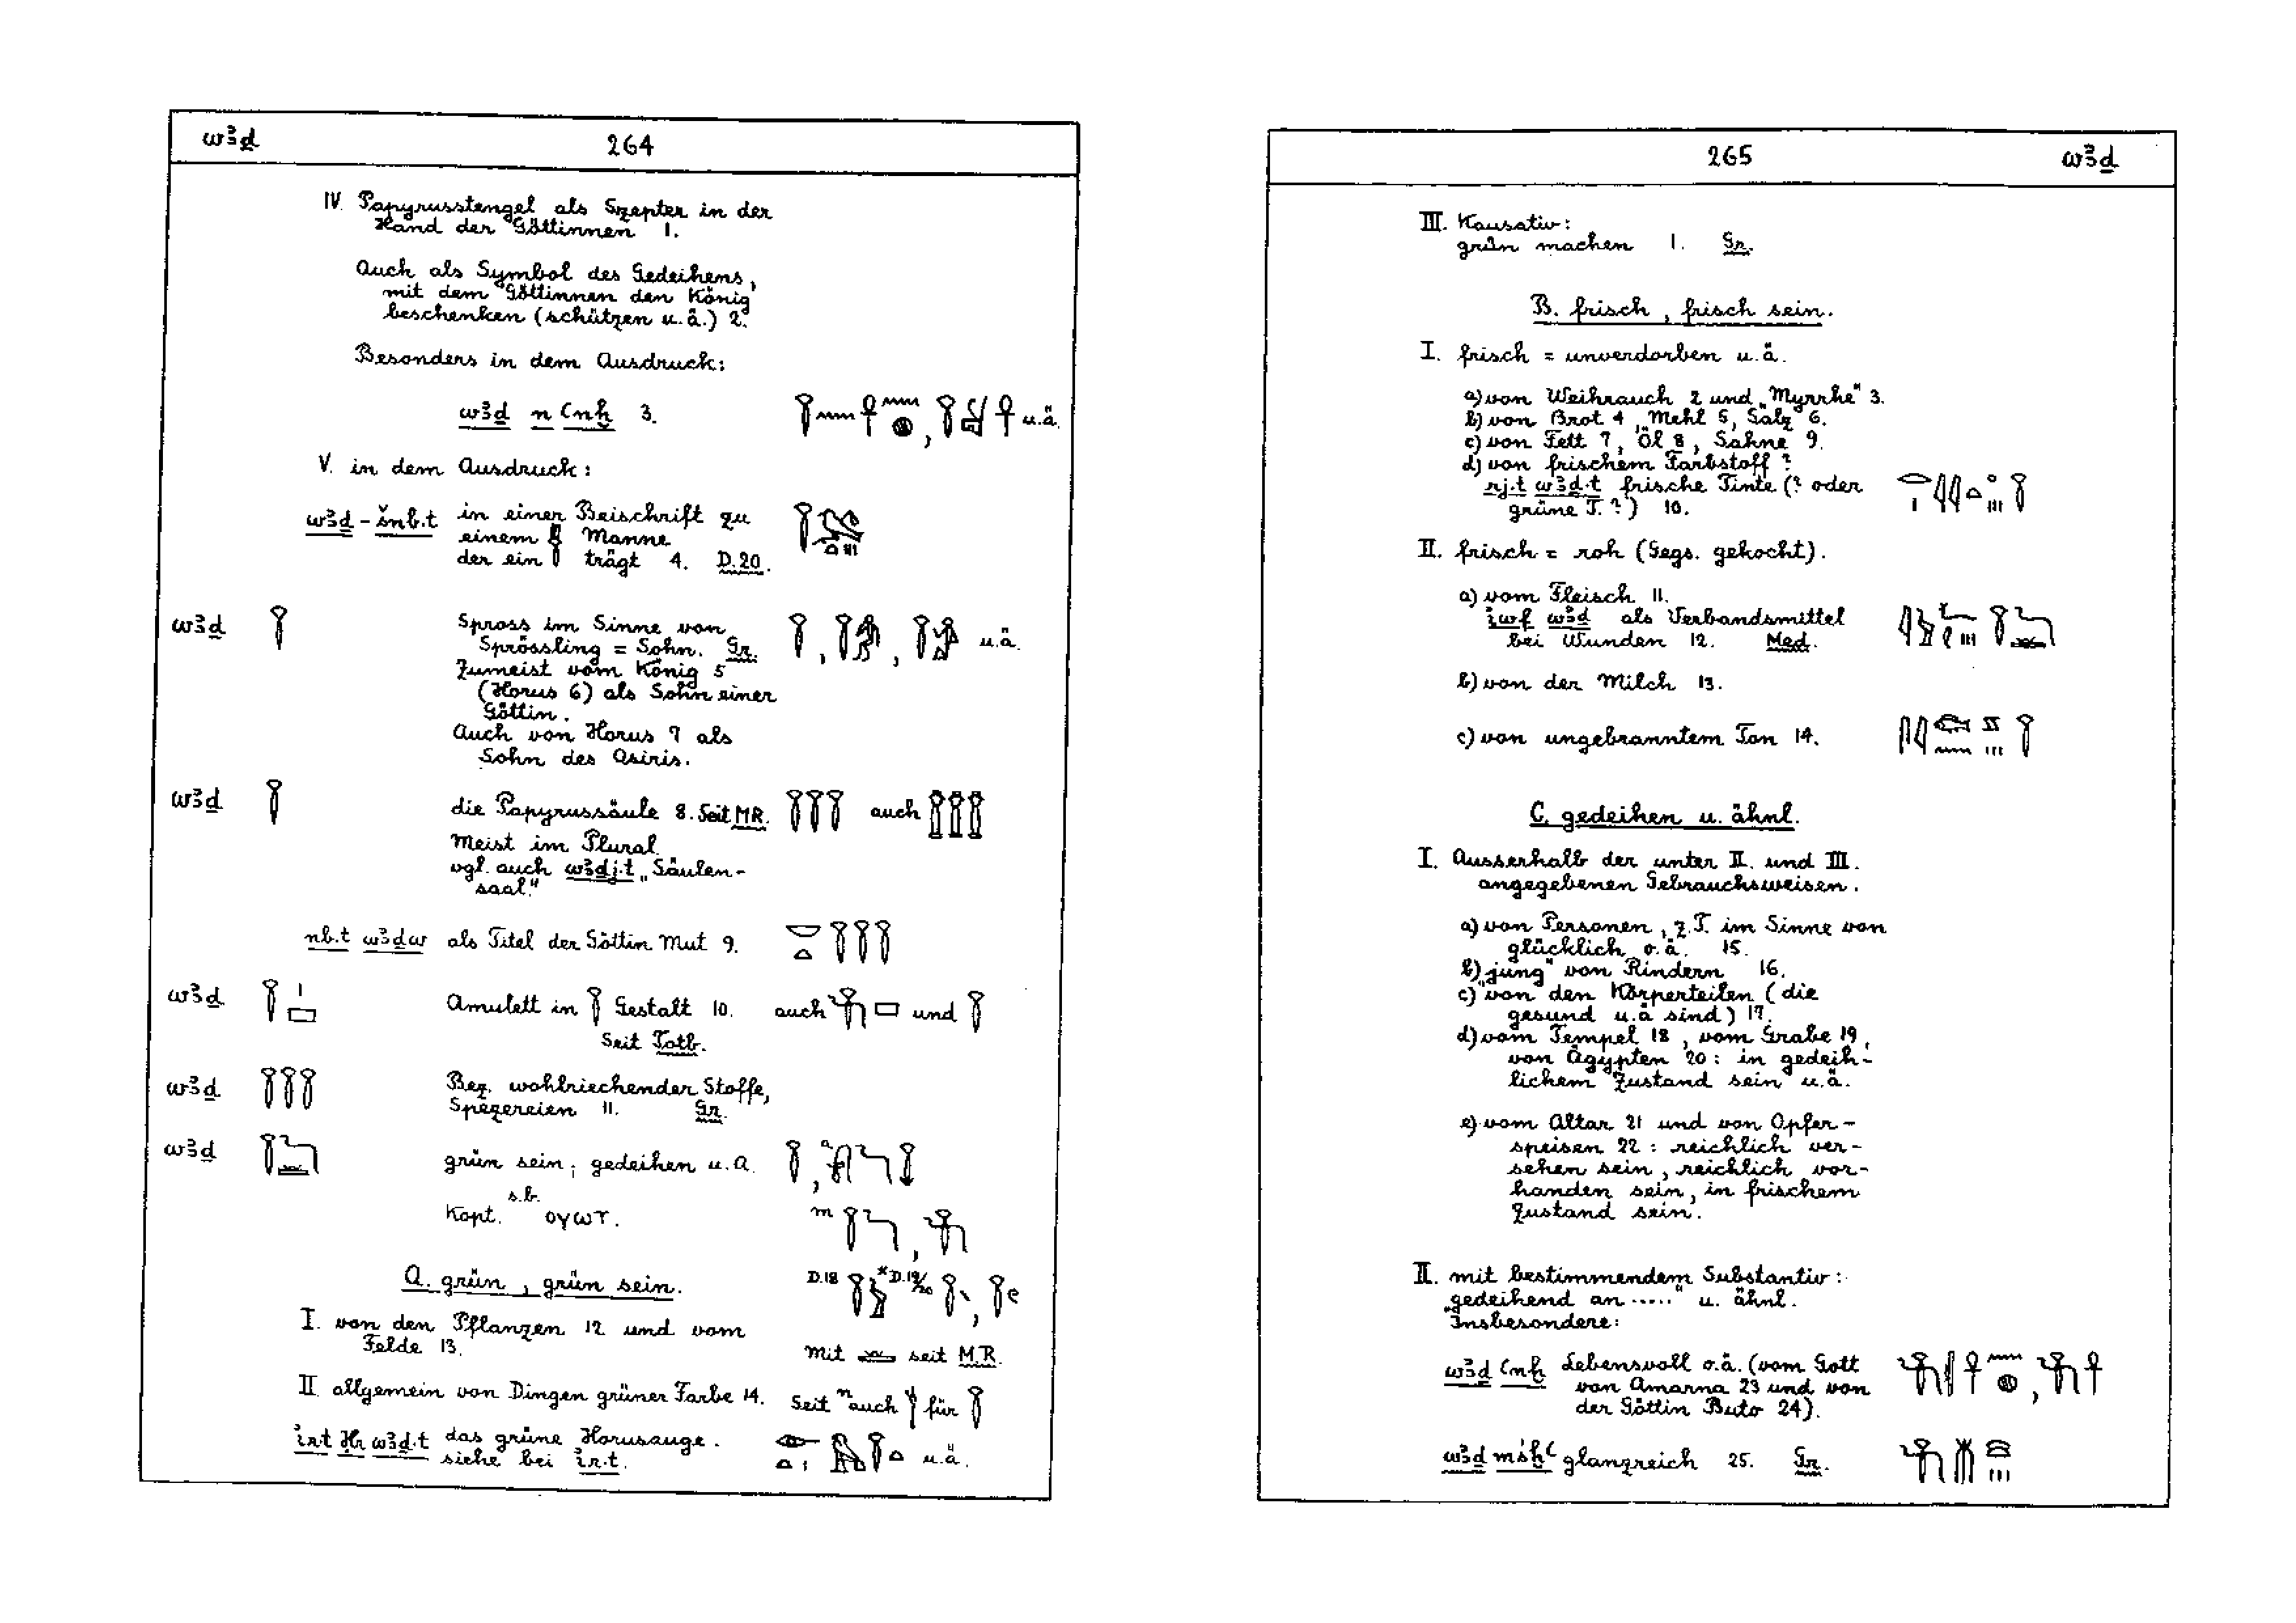 wꜣḏ 264
IV. Papyrusstengel als Szepter in der
Hand der Göttinnen 1.
Auch als Symbol des Gedeihens,
mit dem Göttinnen den König
beschenken (schützen u.ä.) 2.
Besonders in dem Ausdruck:
wꜣḏ n ꜥnḫ 3. u.ä.
V. in dem Ausdruck:
wꜣḏ-šnb.t in einer Beischrift zu
einem Manne
der ein trägt 4. D.20.
wꜣḏ Spross im Sinne von
Sprössling = Sohn. Gr. u.ä.
Zumeist vom König 5
(Horus 6) als Sohn einer
Göttin.
Auch von Horus 7 als
Sohn des Osiris.
wꜣḏ die Papyrussäule 8. Seit MR. auch
Meist im Plural.
vgl. auch wꜣḏj.t „Säulen-
saal."
nb.t wꜣḏw als Titel der Göttin Mut 9.
wꜣḏ Amulett in Gestalt 10. auch und
Seit Totb.
wꜣḏ Bez. wohlriechender Stoffe,
Spezereien 11. Gr.
wꜣḏ grün sein; gedeihen u.a.
Kopt. s.b. ⲟⲩⲱⲧ.
A. grün, grün sein. D.18 D.19/20
I. von den Pflanzen 12 und vom
Felde 13. mit seit M.R.
II. allgemein von Dingen grüner Farbe 14. Seit n auch für
ir.t Ḥr wꜣḏ.t das grüne Horusauge.
siehe bei ir.t. u.ä.
265 wꜣḏ
III. Kausativ:
grün machen 1. Gr.
B. frisch, frisch sein.
I. frisch = unverdorben u.ä.
a) von Weihrauch 2 und „Myrrhe" 3.
b) von Brot 4, Mehl 5, Salz 6.
c) von Fett 7, Öl 8, Sahne 9.
d) von frischem Farbstoff ?
rj.t wꜣḏ.t frische Tinte (? oder
grüne T. ?) 10.
II. frisch = roh (Gegs. gekocht).
a) vom Fleisch 11.
iwf wꜣḏ als Verbandsmittel
bei Wunden 12. Med.
b) von der Milch 13.
c) von ungebranntem Ton 14.
C. gedeihen u. ähnl.
I. Ausserhalb der unter II. und III.
angegebenen Gebrauchsweisen.
a) von Personen, z.T. im Sinne von
glücklich o.ä. 15.
b) „jung" von Rindern 16.
c) von den Körperteilen (die
gesund u.ä sind) 17.
d) vom Tempel 18, vom Grabe 19,
von Ägypten 20: in gedeih-
lichem Zustand sein u.ä.
e) vom Altar 21 und von Opfer-
speisen 22: reichlich ver-
sehen sein, reichlich vor-
handen sein, in frischem
Zustand sein.
II. mit bestimmendem Substantiv:
„gedeihend an ....." u. ähnl.
Insbesondere:
wꜣḏ ꜥnḫ Lebensvoll o.ä. (vom Gott
von Amarna 23 und von
der Göttin Buto 24).
wꜣḏ msḫꜥ glanzreich 25. Gr.